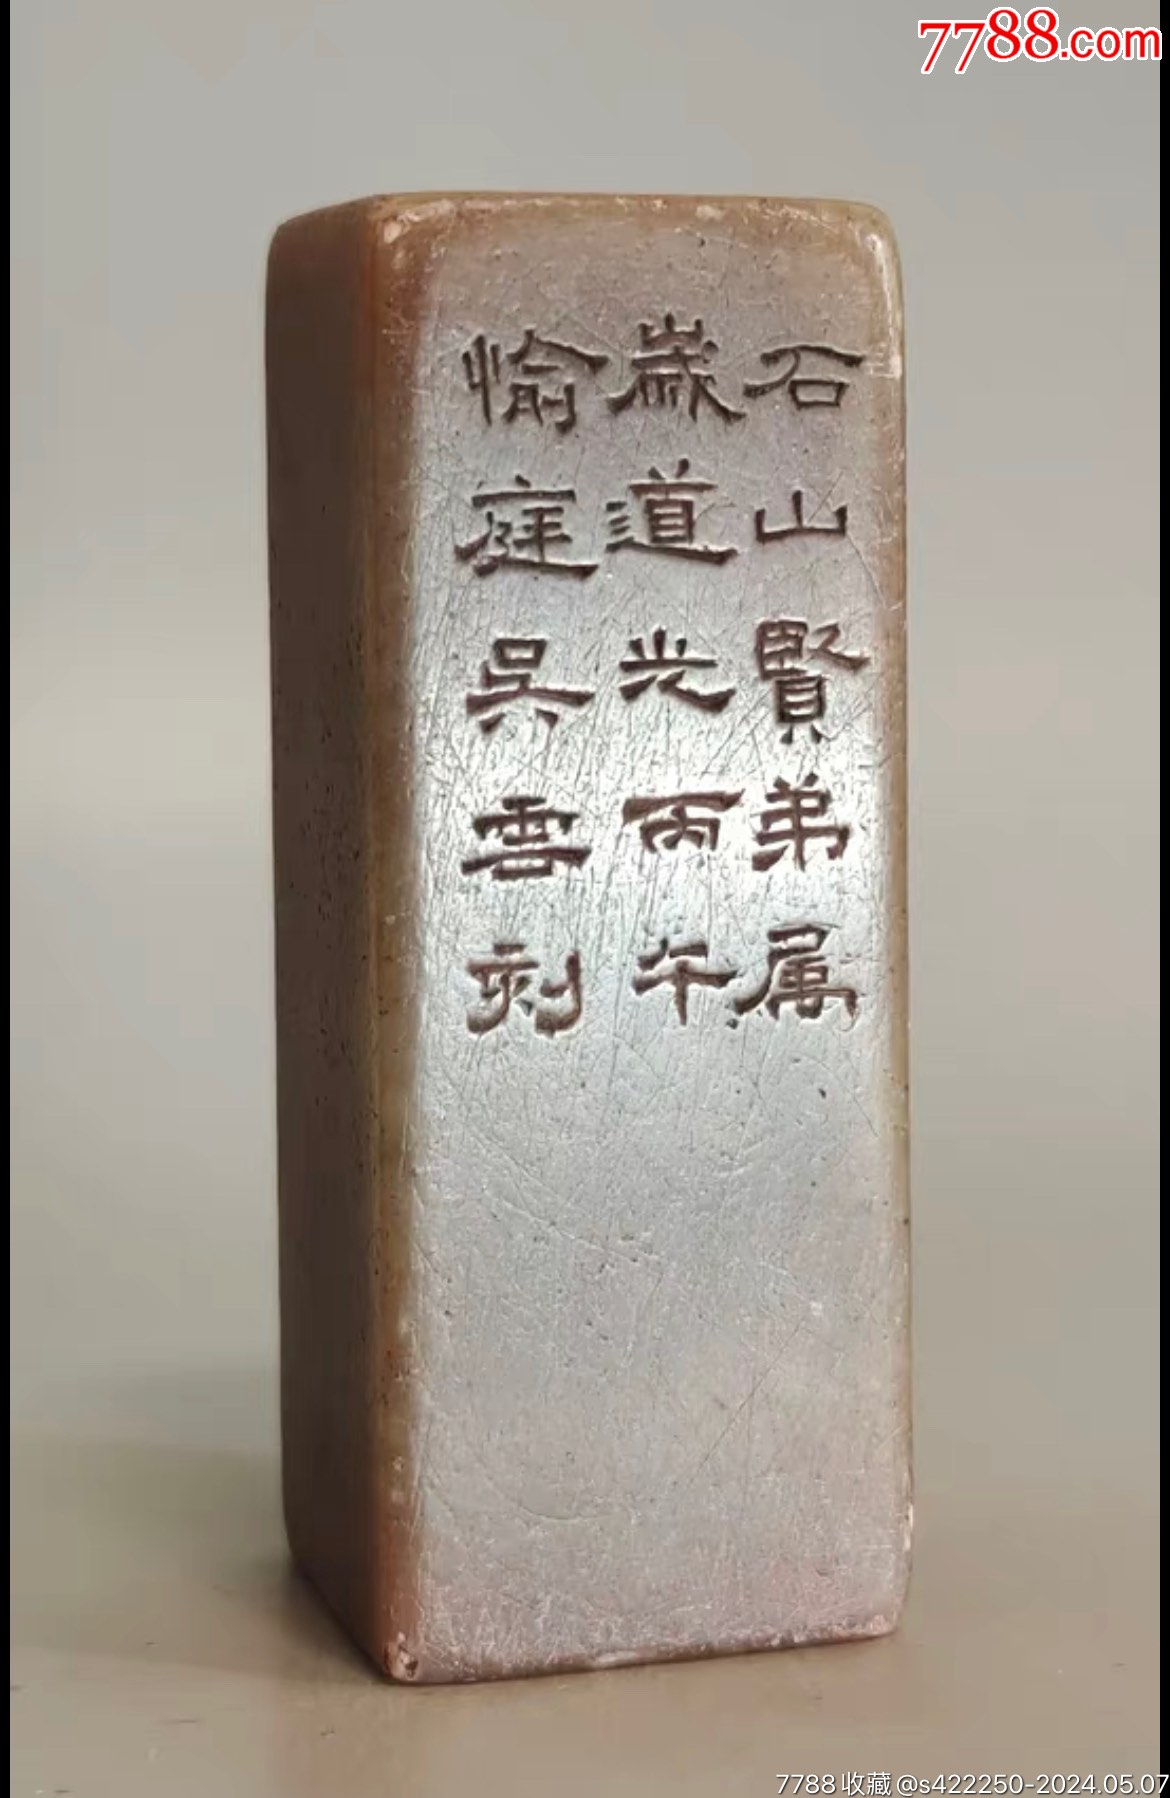 7788.com
石山賢弟属
歲道光丙午
愉庭吳雲刻
7788收藏@s422250-2024.05.07